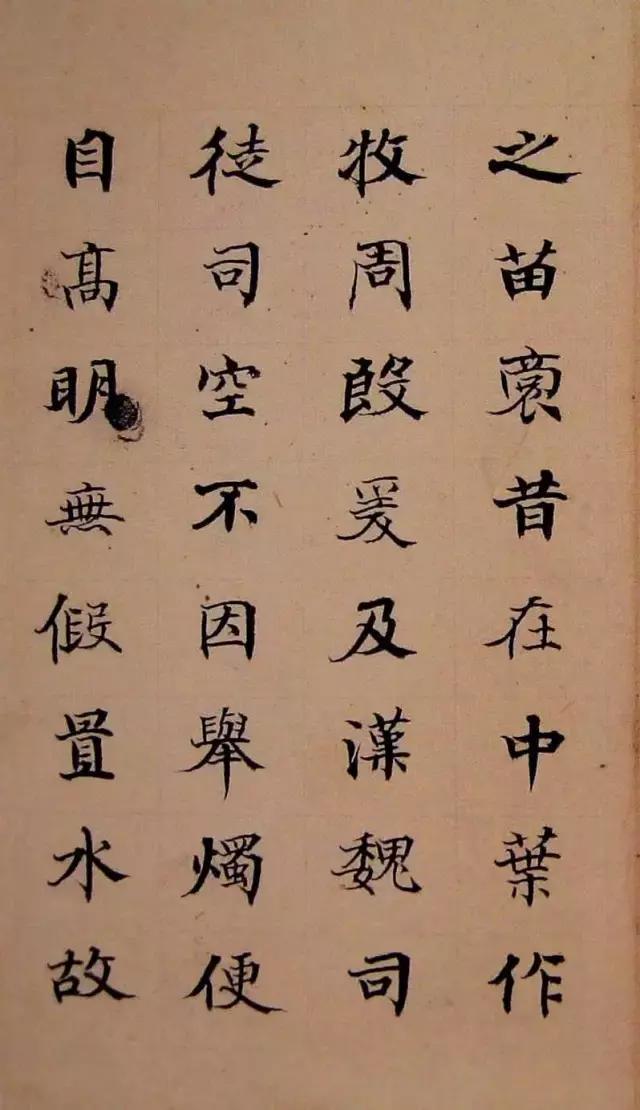 之苗裔昔在中葉作
牧周殷爰及漢魏司
徒司空不因舉燭便
自高明無假置水故